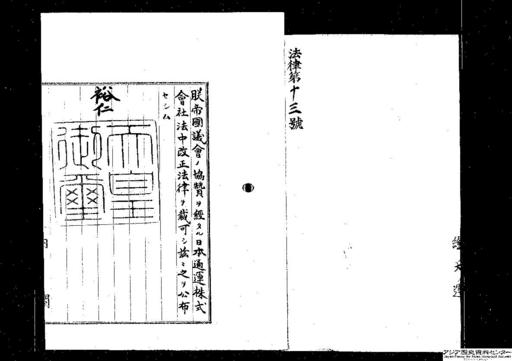 法律第十三號
朕帝國議會ノ協贊ヲ經タル日本通運株式
會社法中改正法律ヲ裁可シ茲ニ之ヲ公布
セシム
裕仁
天皇
御璽
内閣
アジア歴史資料センター